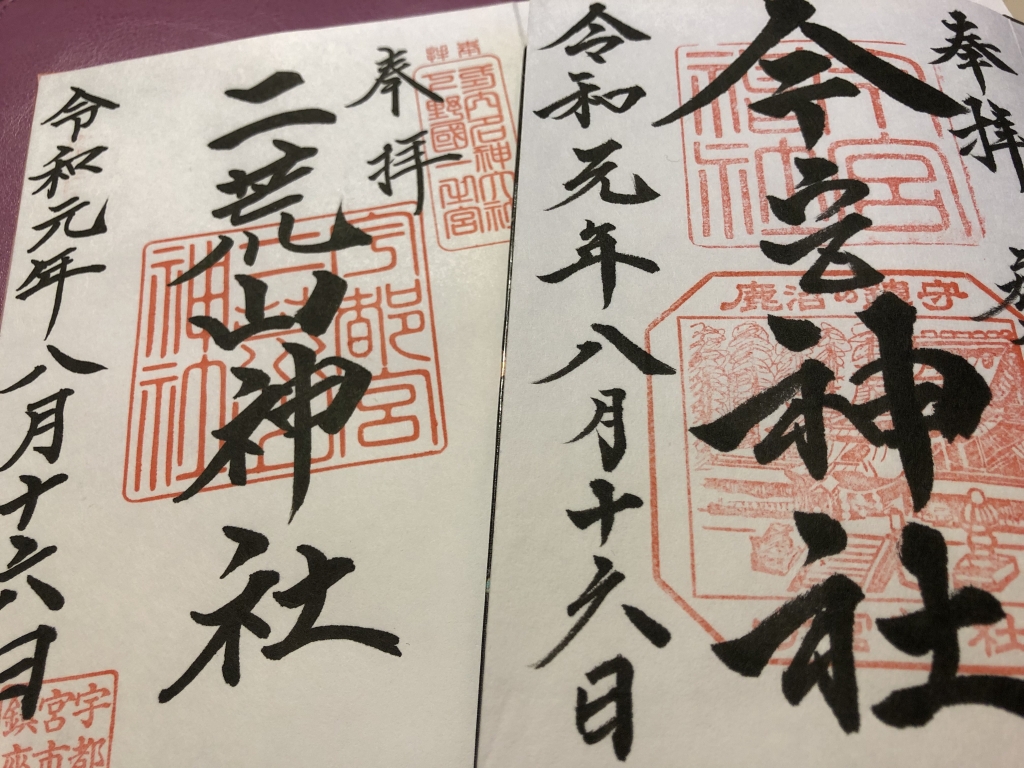 奉拝
今宮神社
今宮
神社
鹿沼の鎮守
令和元年八月十六日
奉拝
名神大社
下野國一之宮
二荒山神社
宇都宮
二荒山
神社
令和元年八月十六日
宇都
宮市
鎮座